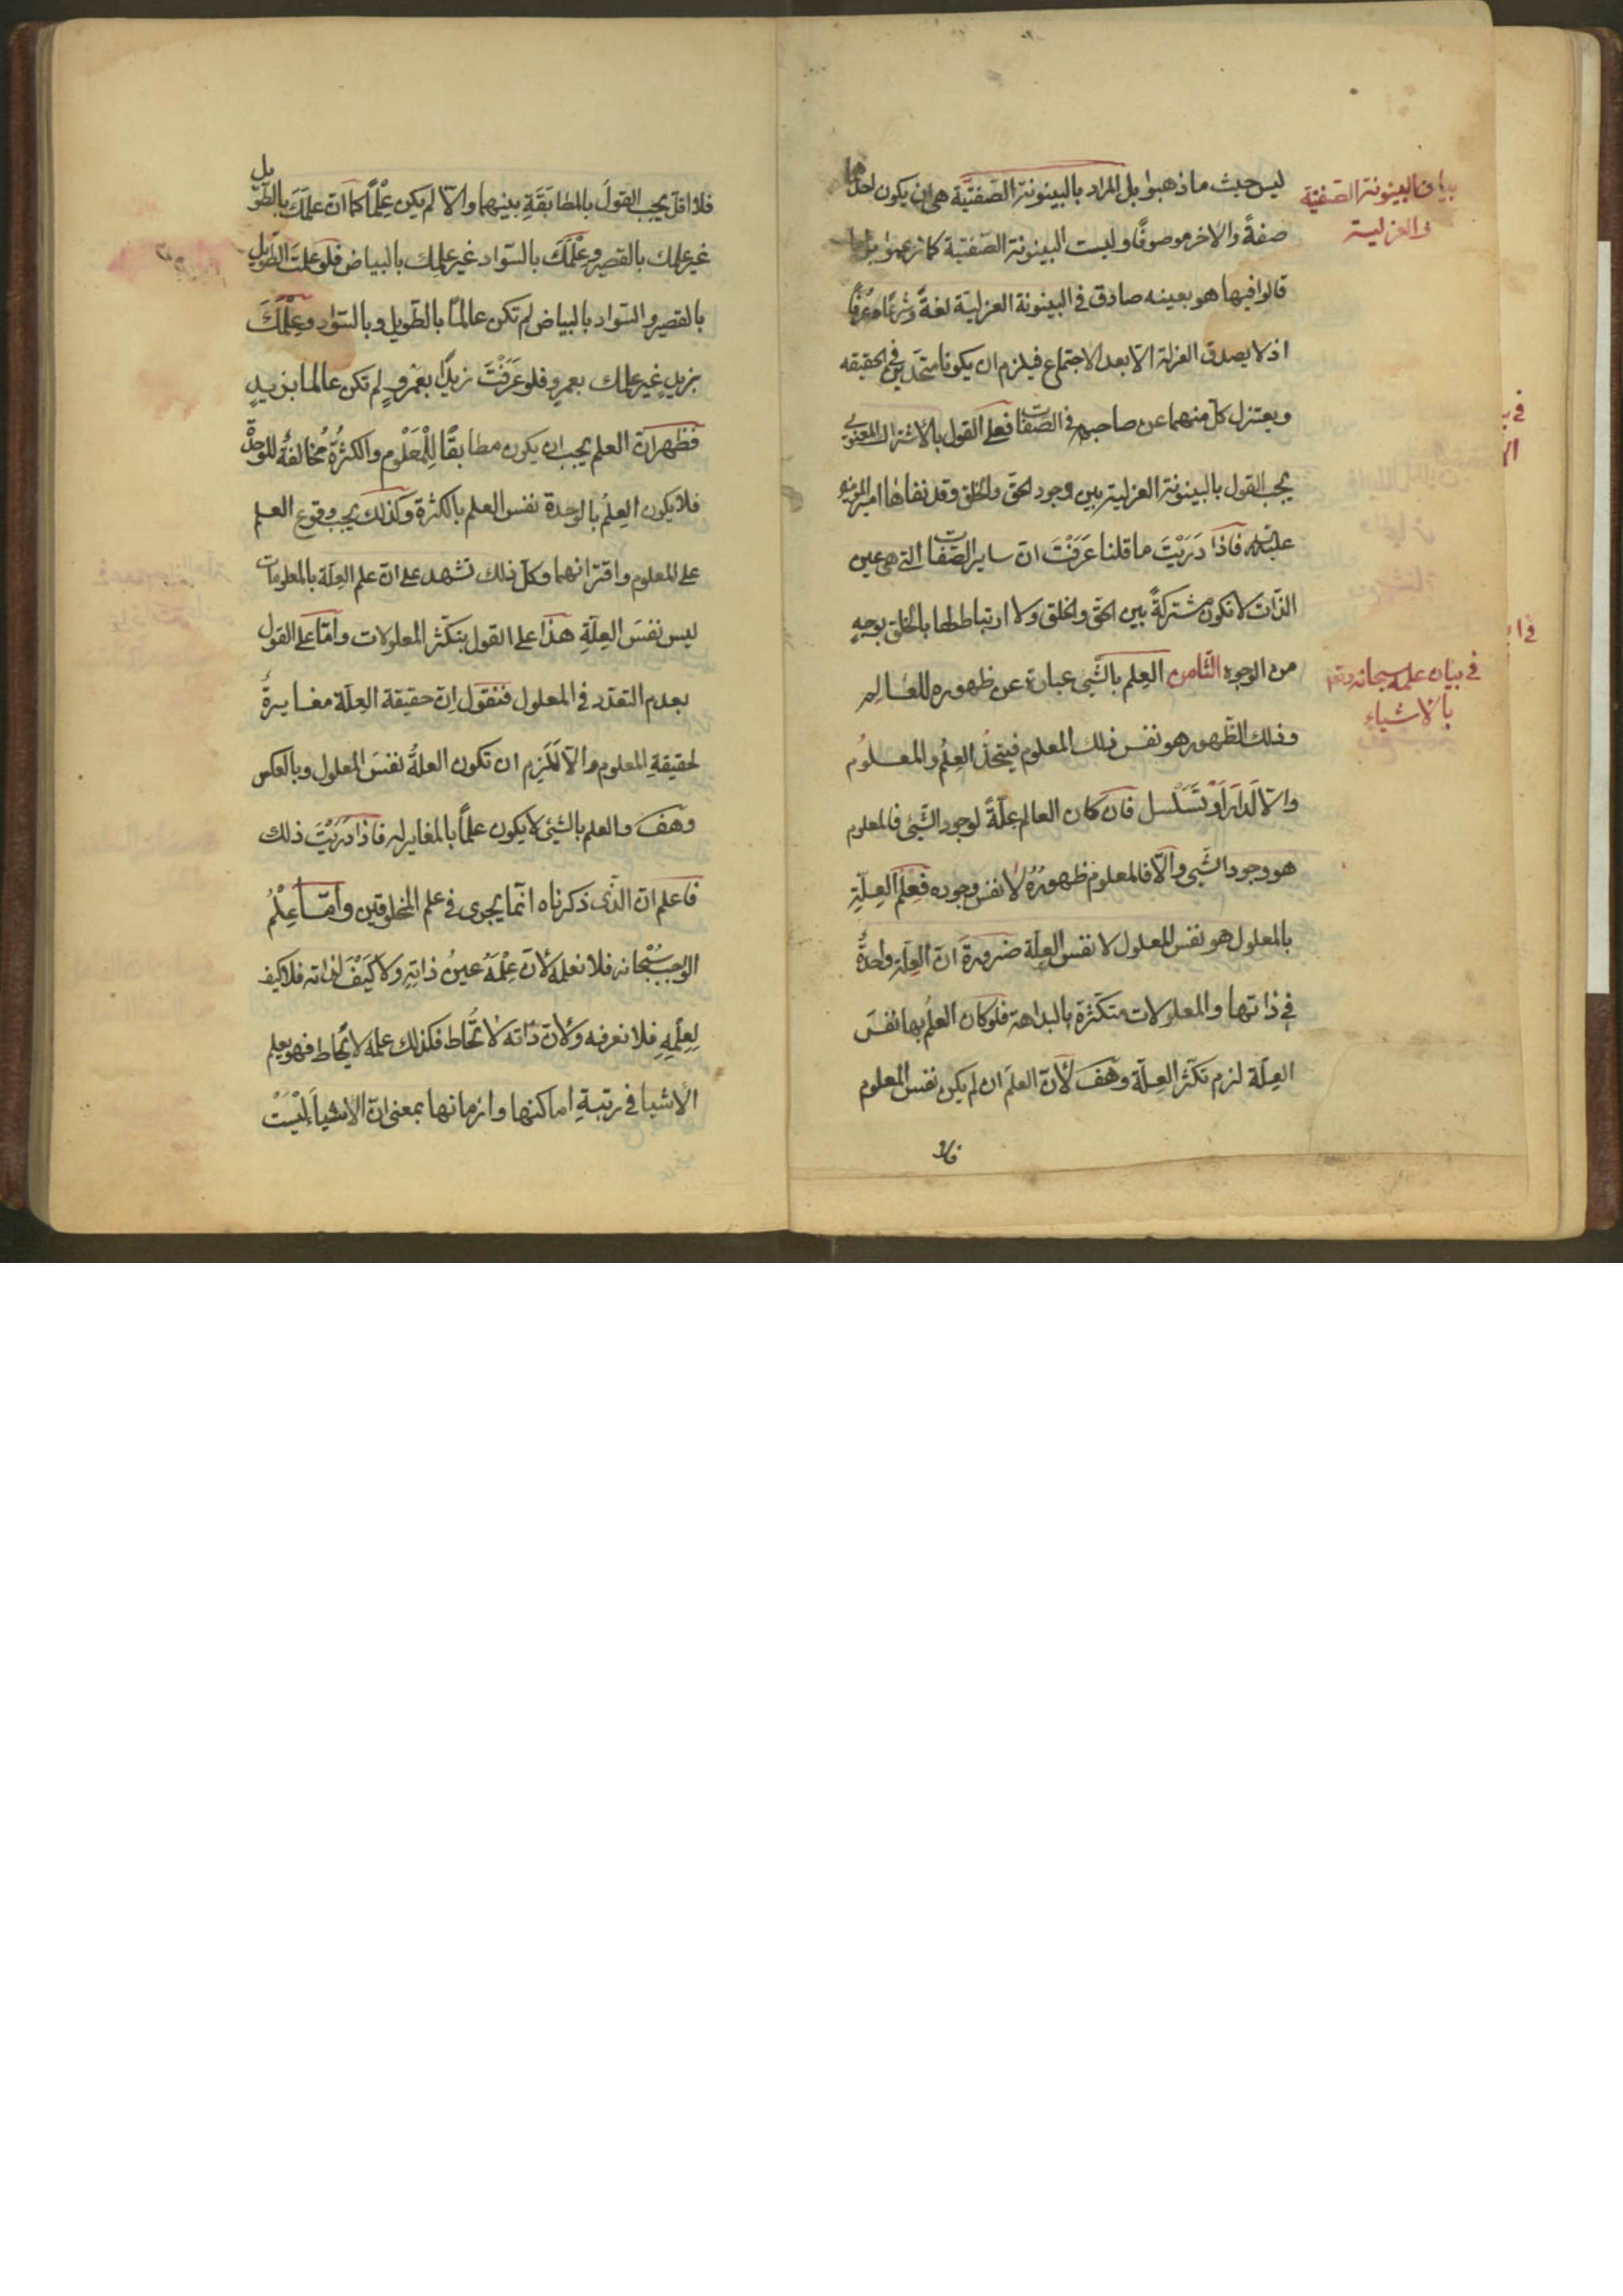 ليس حيث ما ذهبوا بل المراد بالبينونة الصّفتيّة هى ان يكون احدهما
صفةً والاخر موصوفًا وليست البينونة الصّفتيّة كما زعموا بل ما
قالوا فيها هو بعينه صادق فى البينونة العزليّة لغةً وشرعًا وعُرفًا
اذ لا يصدق العزلة الّا بعد الاجتماع فيلزم ان يكونا متّحدين فى الحقيقه
ويعتزل كلّ منهما عن صاحبه فى الصّفات فعلى القول بالاشتراك المعنوى
يجب القول بالبينونة العزلية بين وجود الحقّ والخلق وقد نفاها امير المؤمنين
عليه فاذا دَرَيْتَ ما قلنا عَرَفْتَ انّ ساير الصّفات التى هى عين
الذّات لا تكون مشتركةً بين الحقّ والخلق ولا ارتباط لها بالخلق بوجهٍ
من الوجوه الثّامن العِلم بالشّيى عبارة عن ظهوره للعَالِم
وذلك الظّهور هو نفس ذلك المعلوم فيتّحدُ العِلْم والمعلُوم
والّا لَدارَ اَوْ تَسَلْسل فان كان العالم عِلّةً لوجود الشّيى فالمعلوم
هو وجود الشّيى والّا فالمعلوم ظهورُهُ لا نفس وجوده فَعِلْم العِلّةِ
بالمعلول هو نفس المعلول لا نفس العِلّة ضرورةَ انّ العِلّة واحدةٌ
فى ذاتها والمعلولات متكثّرة بالبداهة فلو كان العلمُ بها نفسَ
العِلّة لزم تكثّر العِلّة وهَفَ لأنّ العلمَ ان لم يكن نفس المعلوم
فلا
بيان البينونة الصّفتيّة
والعزلية
فى بيان علمه سبحانه
بالاشياء
فلا اقلّ يجب القولُ بالمطابَقَةِ بينهما والّا لم يكن عِلْمًا كما انّ علمَكَ بالطّويل
غير علمك بالقصير وعِلْمَكَ بالسّواد غير علمك بالبياض فلو علمتَ الطّويل
بالقصير والسّواد بالبياض لم تكن عالمًا بالطّويل وبالسّواد وعِلْمَكَ
بزيدٍ غير علمك بعمرٍو فلو عَرَفْتَ زيدًا بعَمْروٍ لم تكن عالما بزيدٍ
فظهر انّ العلم يجب ان يكون مطابقًا لِلْمَعْلُوم والكثرُة مُخالفةٌ للوحدة
فلا يكون العِلْم بالوحدة نفس العلم بالكثرة وكذلك يجب وقوع العلم
على المعلوم واقترانهما وكلّ ذلك تشهد على انّ علم العِلّة بالمعلومات
ليس نفسَ العِلّةِ هذا على القول بتكثّر المعلولات وامّا على القول
بعدم التعدّد فى المعلول فنقول انّ حقيقة العِلّة مغايرةٌ
لحقيقةِ المعلوم والّا لَلَزِم ان تكون العلةُ نفسَ المعلول وبالعكس
وهَفَ والعلم بالشّيئ لا يكون علمًا بالمغاير له فاذا دَرَيْتَ ذلك
فاعلم انّ الّذى ذكرناه انّما يجرى فى علم المخلوقين وامّا عِلْمُ
الواجب سُبْحانه فلا نعلمه لأنّ عِلْمَهُ عينُ ذاتِهِ ولا كَيْفَ لذاته فلا كيف
لِعِلْمِهِ فلا نعرفه ولأنّ ذاته لا تُحاط فكذلك علمه لا يُحاط فهو يعلم
الأشيا فى رتبةِ اماكنها وازمانها بمعنى انّ الاشياءَ لَيْسَتْ